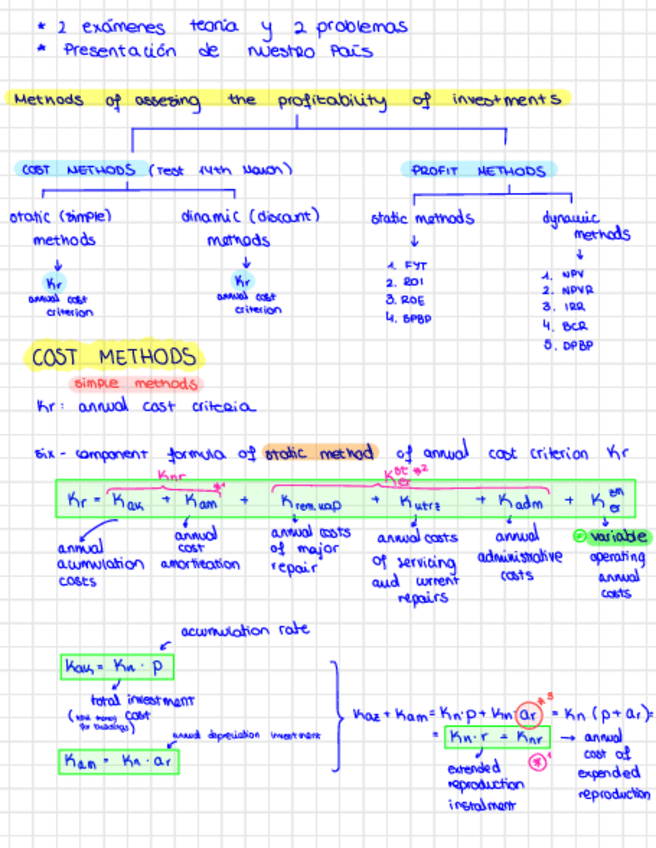 * 2 exámenes teoría y 2 problemas
* Presentación de nuestro País
Methods of assesing the profitability of investments
COST METHODS (Test 14th March)
PROFIT METHODS
static (simple) methods
dinamic (discount) methods
static methods
dynamic methods
Kr
annual cost criterion
Kr
annual cost criterion
1. FYT
2. ROI
3. ROE
4. SPBP
1. NPV
2. NPVR
3. IRR
4. BCR
5. DPBP
COST METHODS
simple methods
Kr: annual cost criteria
six-component formula of static method of annual cost criterion Kr
Knr *1
K st er *2
Kr = Kak + Kam + Krem.kap + Kutrz + Kadm + K zm er
annual acumulation costs
annual cost amortization
annual costs of major repair
annual costs of servicing and current repairs
annual administrative costs
variable operating annual costs
acumulation rate
Kak = Kn · p
total investment cost
(total money for buildings)
annual depreciation investment
Kam = Kn · ar
Kaz + Kam = Kn·p + Kn·ar *3 = Kn (p + ar) =
= Kn·r = Knr → annual cost of expended reproduction
*1
extended reproduction instalment